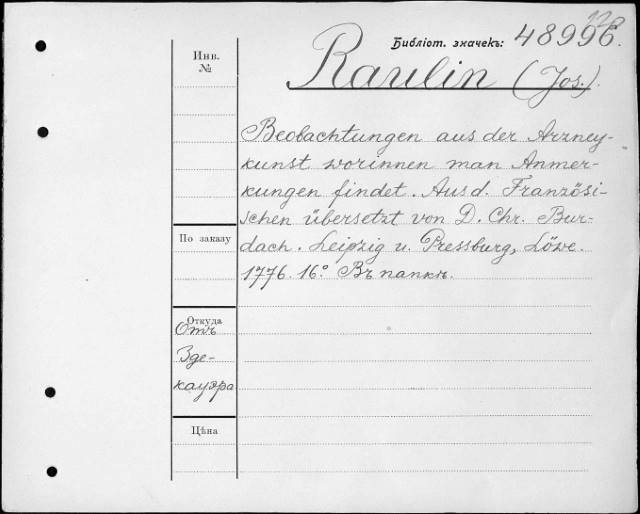 Библіот. значекъ: 48996.
Инв.
№
Raulin (Jos.).
Beobachtungen aus der Arzney-
kunst worinnen man Anmer-
kungen findet. Aus d. Französi-
schen übersetzt von D. Chr. Bur-
dach. Leipzig u. Pressburg, Löwe.
1776. 16° Въ папкѣ.
По заказу
Откуда
Отъ
Зде-
кауэра
Цѣна